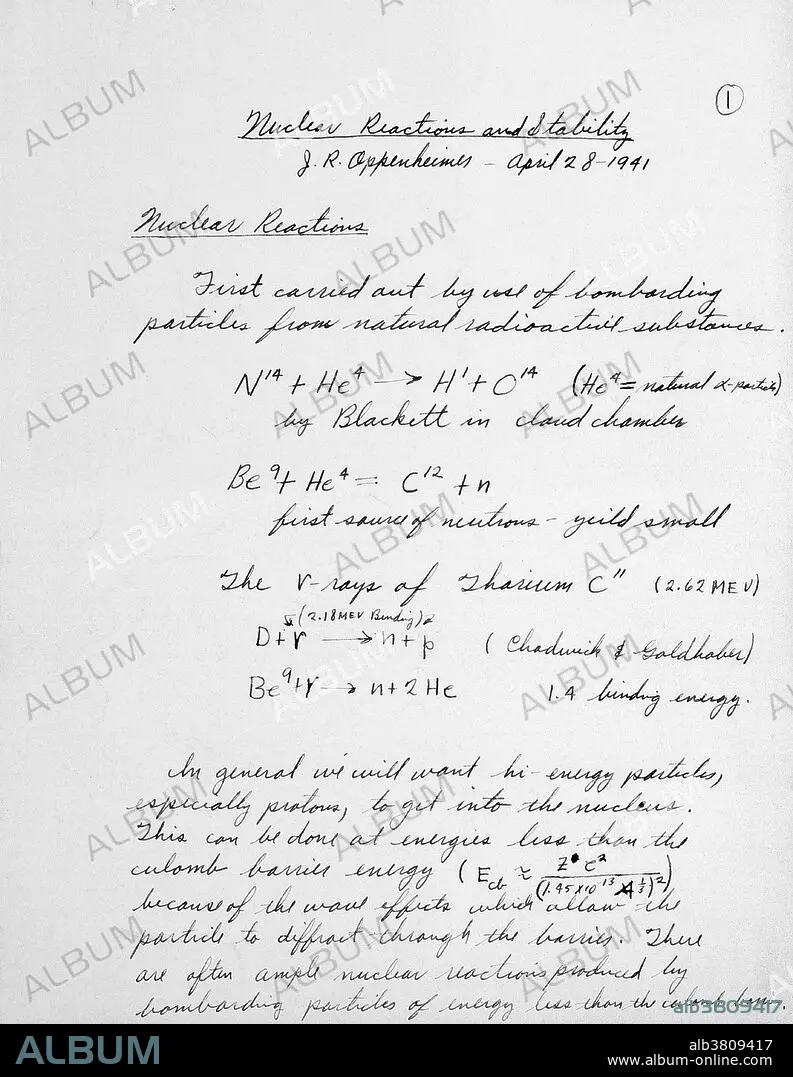 1
Nuclear Reactions and Stability
J. R. Oppenheimer - April 28-1941
Nuclear Reactions
First carried out by use of bombarding
particles from natural radioactive substances.
N¹⁴ + He⁴ → H¹ + O¹⁴ (He⁴ = natural α-particle)
by Blackett in cloud chamber
Be⁹ + He⁴ = C¹² + n
first source of neutrons - yeild small
The γ-rays of Thorium C" (2.62 MEV)
(2.18 MEV Binding)
D + γ → n + p (Chadwick & Goldhaber)
Be⁹ + γ → n + 2 He 1.4 binding energy.
In general we will want hi-energy particles,
especially protons, to get into the nucleus.
This can be done at energies less than the
culomb barrier energy (E_cb ≈ Z e² / (1.45 x 10⁻¹³ A^⅓)²)
because of the wave effects which allow the
particle to diffract through the barrier. There
are often ample nuclear reactions produced by
bombarding particles of energy less than the culomb barr.
alb3809417
ALBUM
alb3809417
www.album-online.com